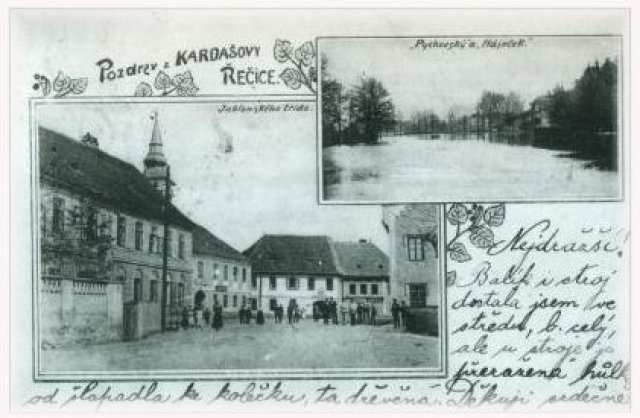 Pozdrav z KARDAŠOVY
ŘEČICE.
„Pychovský“ a „Háječek“.
Jablonského třída.
Nejdražší!
Balík i stroj
dostala jsem ve
středu, b. celý,
ale u stroje je
přeražená hůlk
od šlapadla ke kolečku, ta dřevěná. Děkuji srdečně